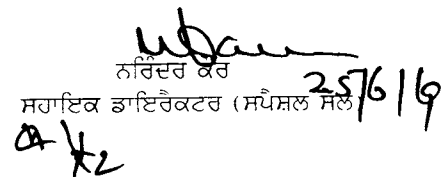 ਨਰਿੰਦਰ ਕੌਰ
ਸਹਾਇਕ ਡਾਇਰੈਕਟਰ (ਸਪੈਸ਼ਲ ਸੈਲ
25/6/19